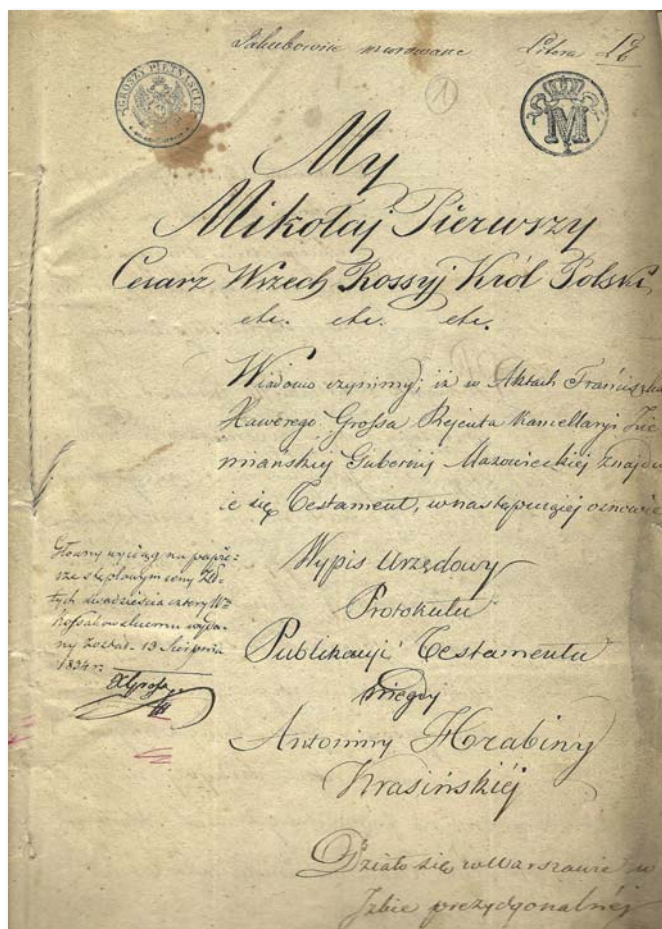 Jakubowice murowane Litera
GROSZY PIĘTNAŚCIE
1
M
My
Mikołaj Pierwszy
Cesarz Wszech Rossyj Król Polski
etc. etc. etc.
Wiadomo czynimy; iż w Aktach Franciszka
Xawerego Grossa Rejenta Kancellaryi Zie
miańskiej Gubernij Mazowieckiej znajdu
ie się Testament, w następującej osnowie
Główny wyciąg na papie:
rze stęplowym ceny Zło:
tych dwadzieścia cztery W.
Kossakowskiemu wyda:
ny został. 13 Sierpnia
1834 r:
XGross
Wypis Urzędowy
Protokułu
Publikacyi Testamentu
niegdy
Antoniny Hrabiny
Krasińskiéj
Działo się w Warszawie w
Izbie prezydyonalnéj